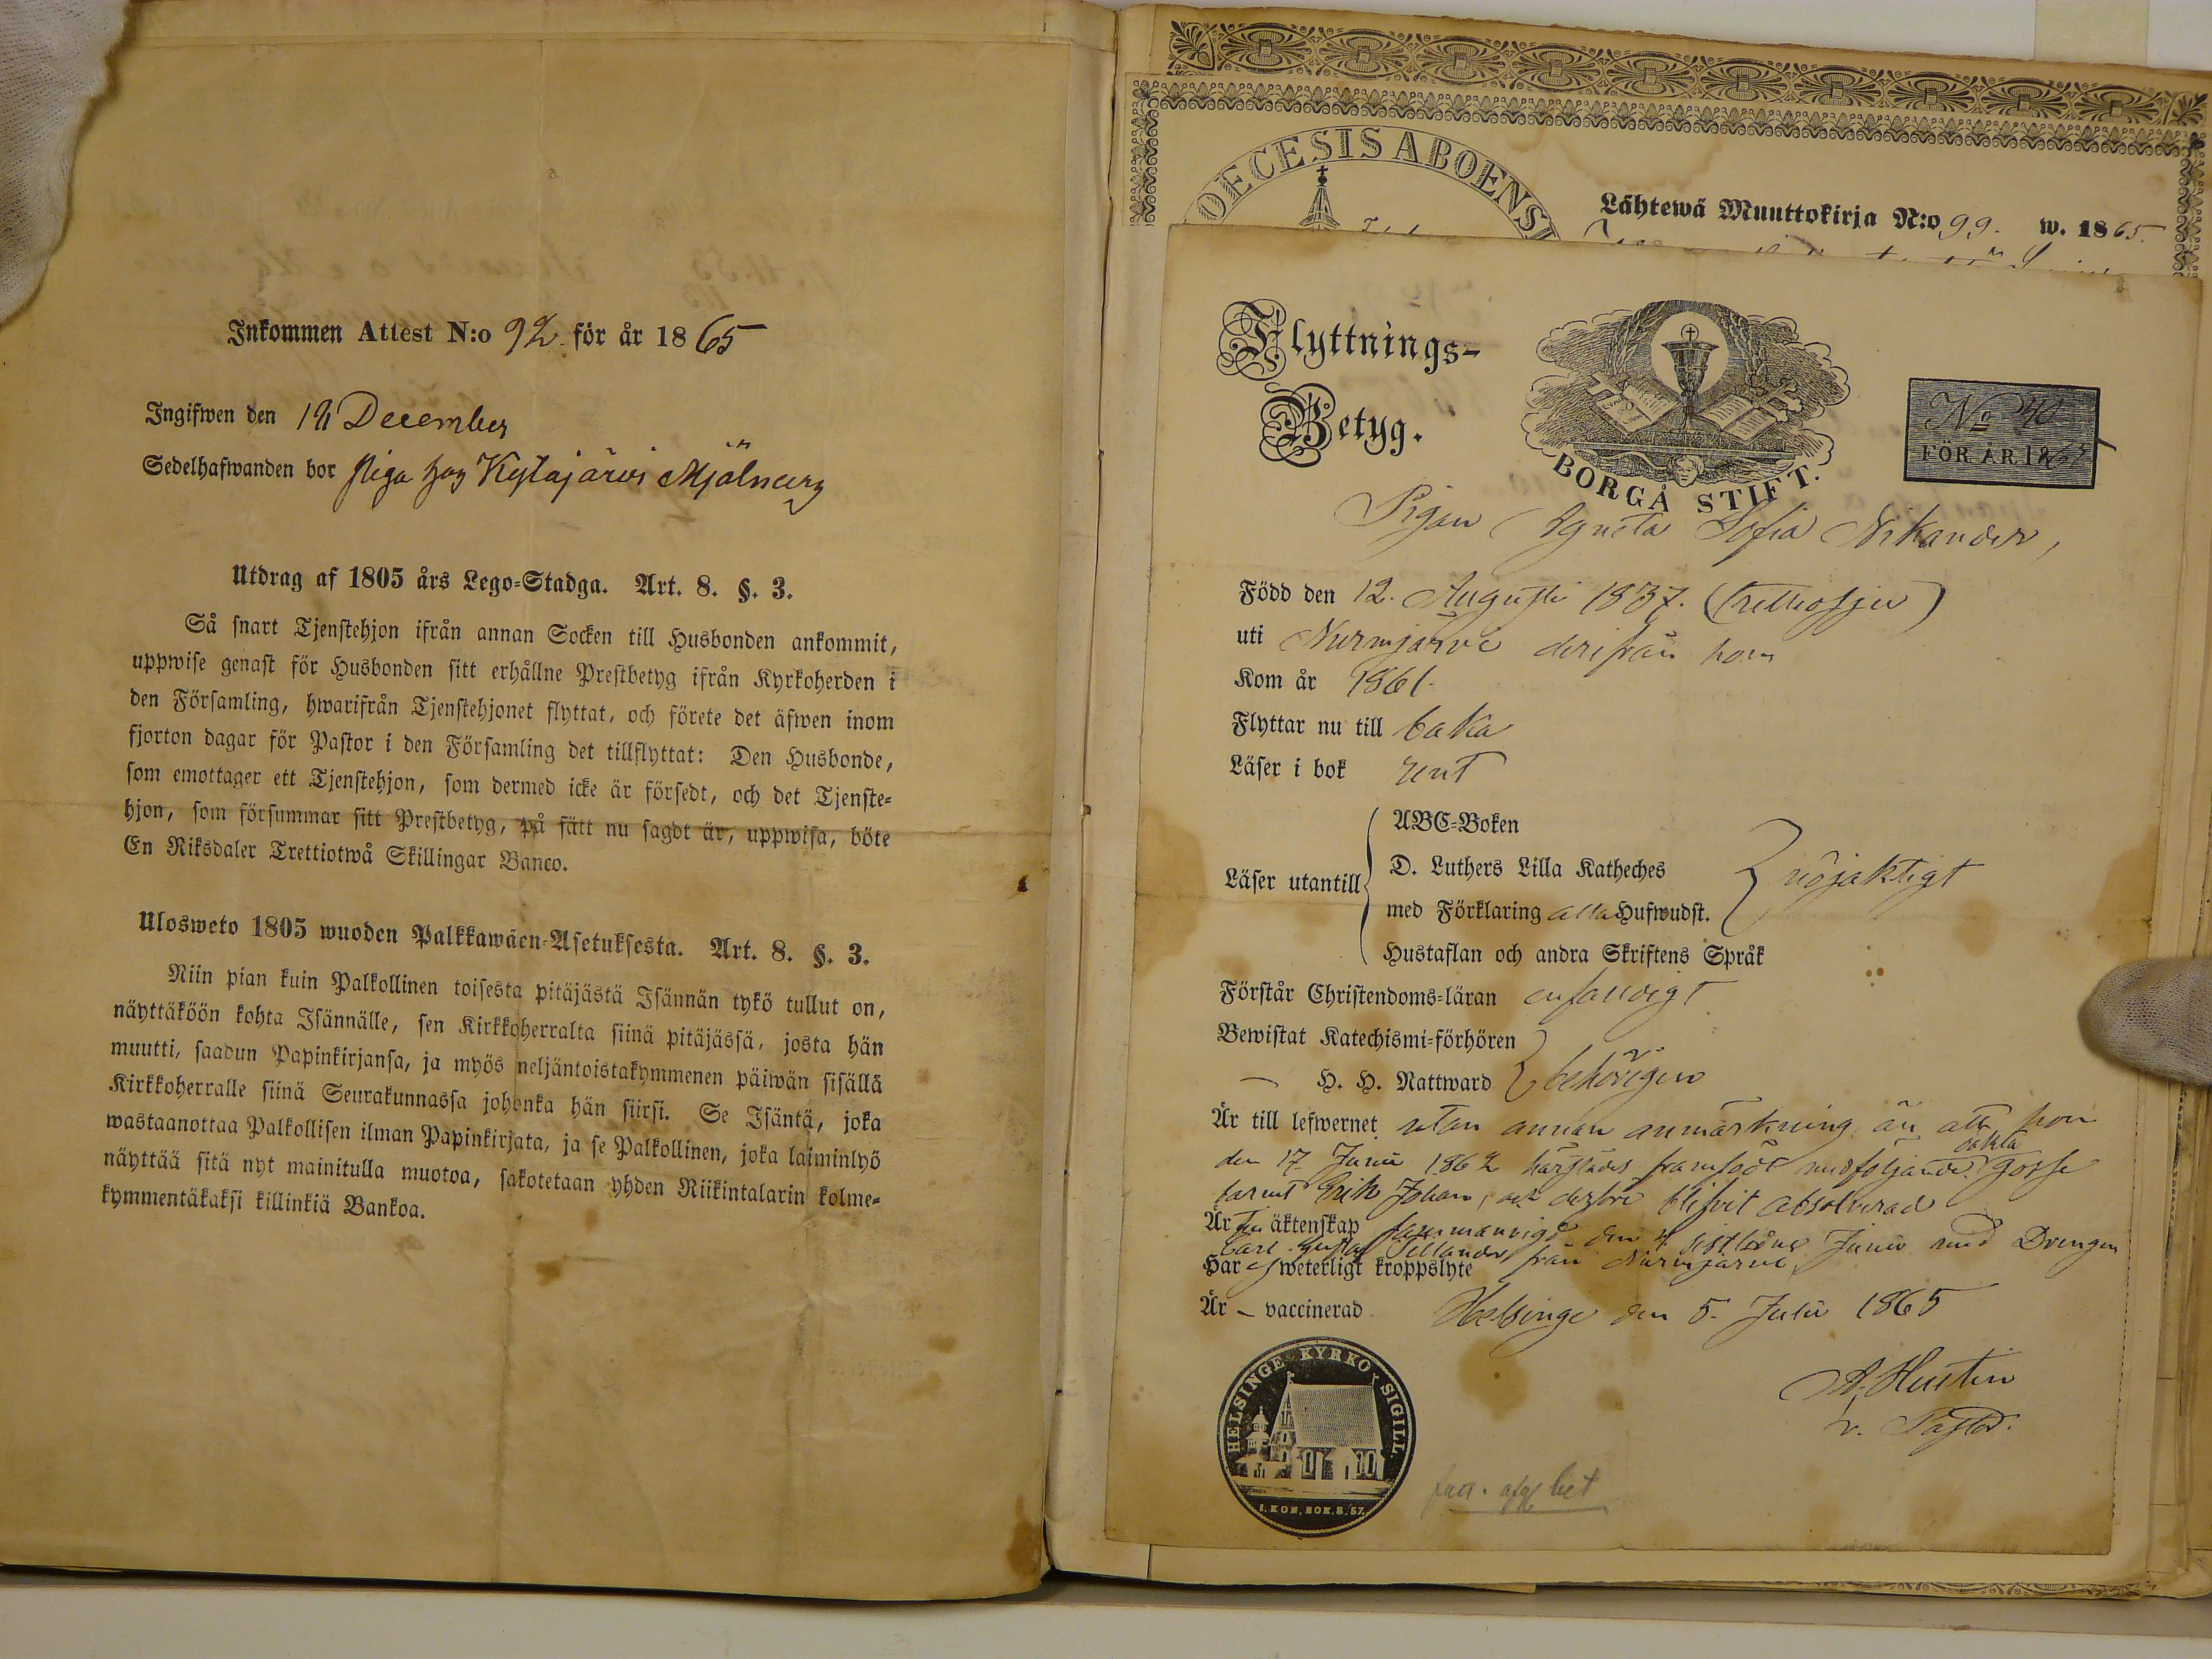 Inkommen Attest N:o 92. för år 1865
Ingifwen den 12 December
Sedelhafwanden bor piga hos Kytäjärvi Mjölnarn
Utdrag af 1805 års Lego-Stadga. Art. 8. §. 3.
Så snart Tjenstehjon ifrån annan Socken till Husbonden ankommit,
uppwise genast för Husbonden sitt erhållne Prestbetyg ifrån Kyrkoherden i
den Församling, hwarifrån Tjenstehjonet flyttat, och förete det äfwen inom
fjorton dagar för Pastor i den Församling det tillflyttat: Den Husbonde,
som emottager ett Tjenstehjon, som dermed icke är försedt, och det Tjenste-
hjon, som försummar sitt Prestbetyg, på sätt nu sagdt är, uppwisa, böte
En Riksdaler Trettiotwå Skillingar Banco.
Ulosweto 1805 wuoden Palkkawäen-Asetuksesta. Art. 8. §. 3.
Niin pian kuin Palkollinen toisesta pitäjästä Isännän tykö tullut on,
näyttäköön kohta Isännälle, sen Kirkkoherralta siinä pitäjässä, josta hän
muutti, saadun Papinkirjansa, ja myös neljäntoistakymmenen päiwän sisällä
Kirkkoherralle siinä Seurakunnassa johonka hän siirsi. Se Isäntä, joka
wastaanottaa Palkollisen ilman Papinkirjata, ja se Palkollinen, joka laiminlyö
näyttää sitä nyt mainitulla muotoa, sakotetaan yhden Riikintalarin kolme-
kymmentäkaksi killinkiä Bankoa.
OECESIS ABOENSI
Lähtewä Muuttokirja N:o 99. w. 1865.
Flyttnings-
Betyg.
BORGÅ STIFT.
No 40
FÖR ÅR 1865
Pigan Agneta Sofia Nikander,
Född den 12. Augusti 1837. (trettiosju)
uti Nurmijärvi derifrån hon
Kom år 1861.
Flyttar nu till baka
Läser i bok rent
Läser utantill
ABC-Boken
D. Luthers Lilla Katheches
med Förklaring alla Hufwudst.
Hustaflan och andra Skriftens Språk
nöjaktigt
Förstår Christendoms-läran enfaldigt
Bewistat Katechismi-förhören
— H. H. Nattward
behörigen
Är till lefwernet utan annan anmärkning, än att hon
den 17 Junii 1862 härstädes framfödt medföljande oäkta gosse
barnet Erik Johan, och derföre blifvit absolverad
Är i äktenskap sammanvigd den 4 sistledne Junii med Drengen
Carl Gustaf Tillander från Nurmijärvi
Har ej weterligt kroppslyte
Är — vaccinerad. Helsinge den 5. Julii 1865
A. Hustin
v. Pastor.
HELSINGE KYRKO SIGILL
1. KON. BOK. 8. 57.